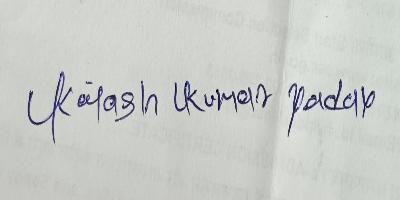 Kailash Kumar Yadav